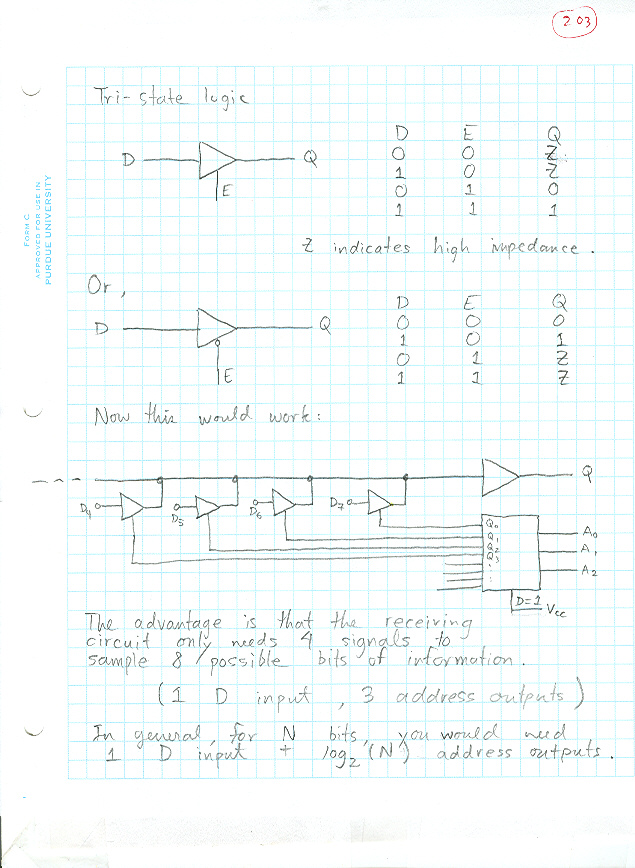 203
Tri-state logic
FORM C
APPROVED FOR USE IN
PURDUE UNIVERSITY
D Q
E
D E Q
0 0 Z
1 0 Z
0 1 0
1 1 1
Z indicates high impedance.
Or,
D Q
E
D E Q
0 0 0
1 0 1
0 1 Z
1 1 Z
Now this would work:
Q
D4 D5 D6 D7
Q0
Q1
Q2
Q3
A0
A1
A2
D=1 Vcc
The advantage is that the receiving
circuit only needs 4 signals to
sample 8 possible bits of information.
(1 D input, 3 address outputs)
In general, for N bits, you would need
1 D input + log2(N) address outputs.